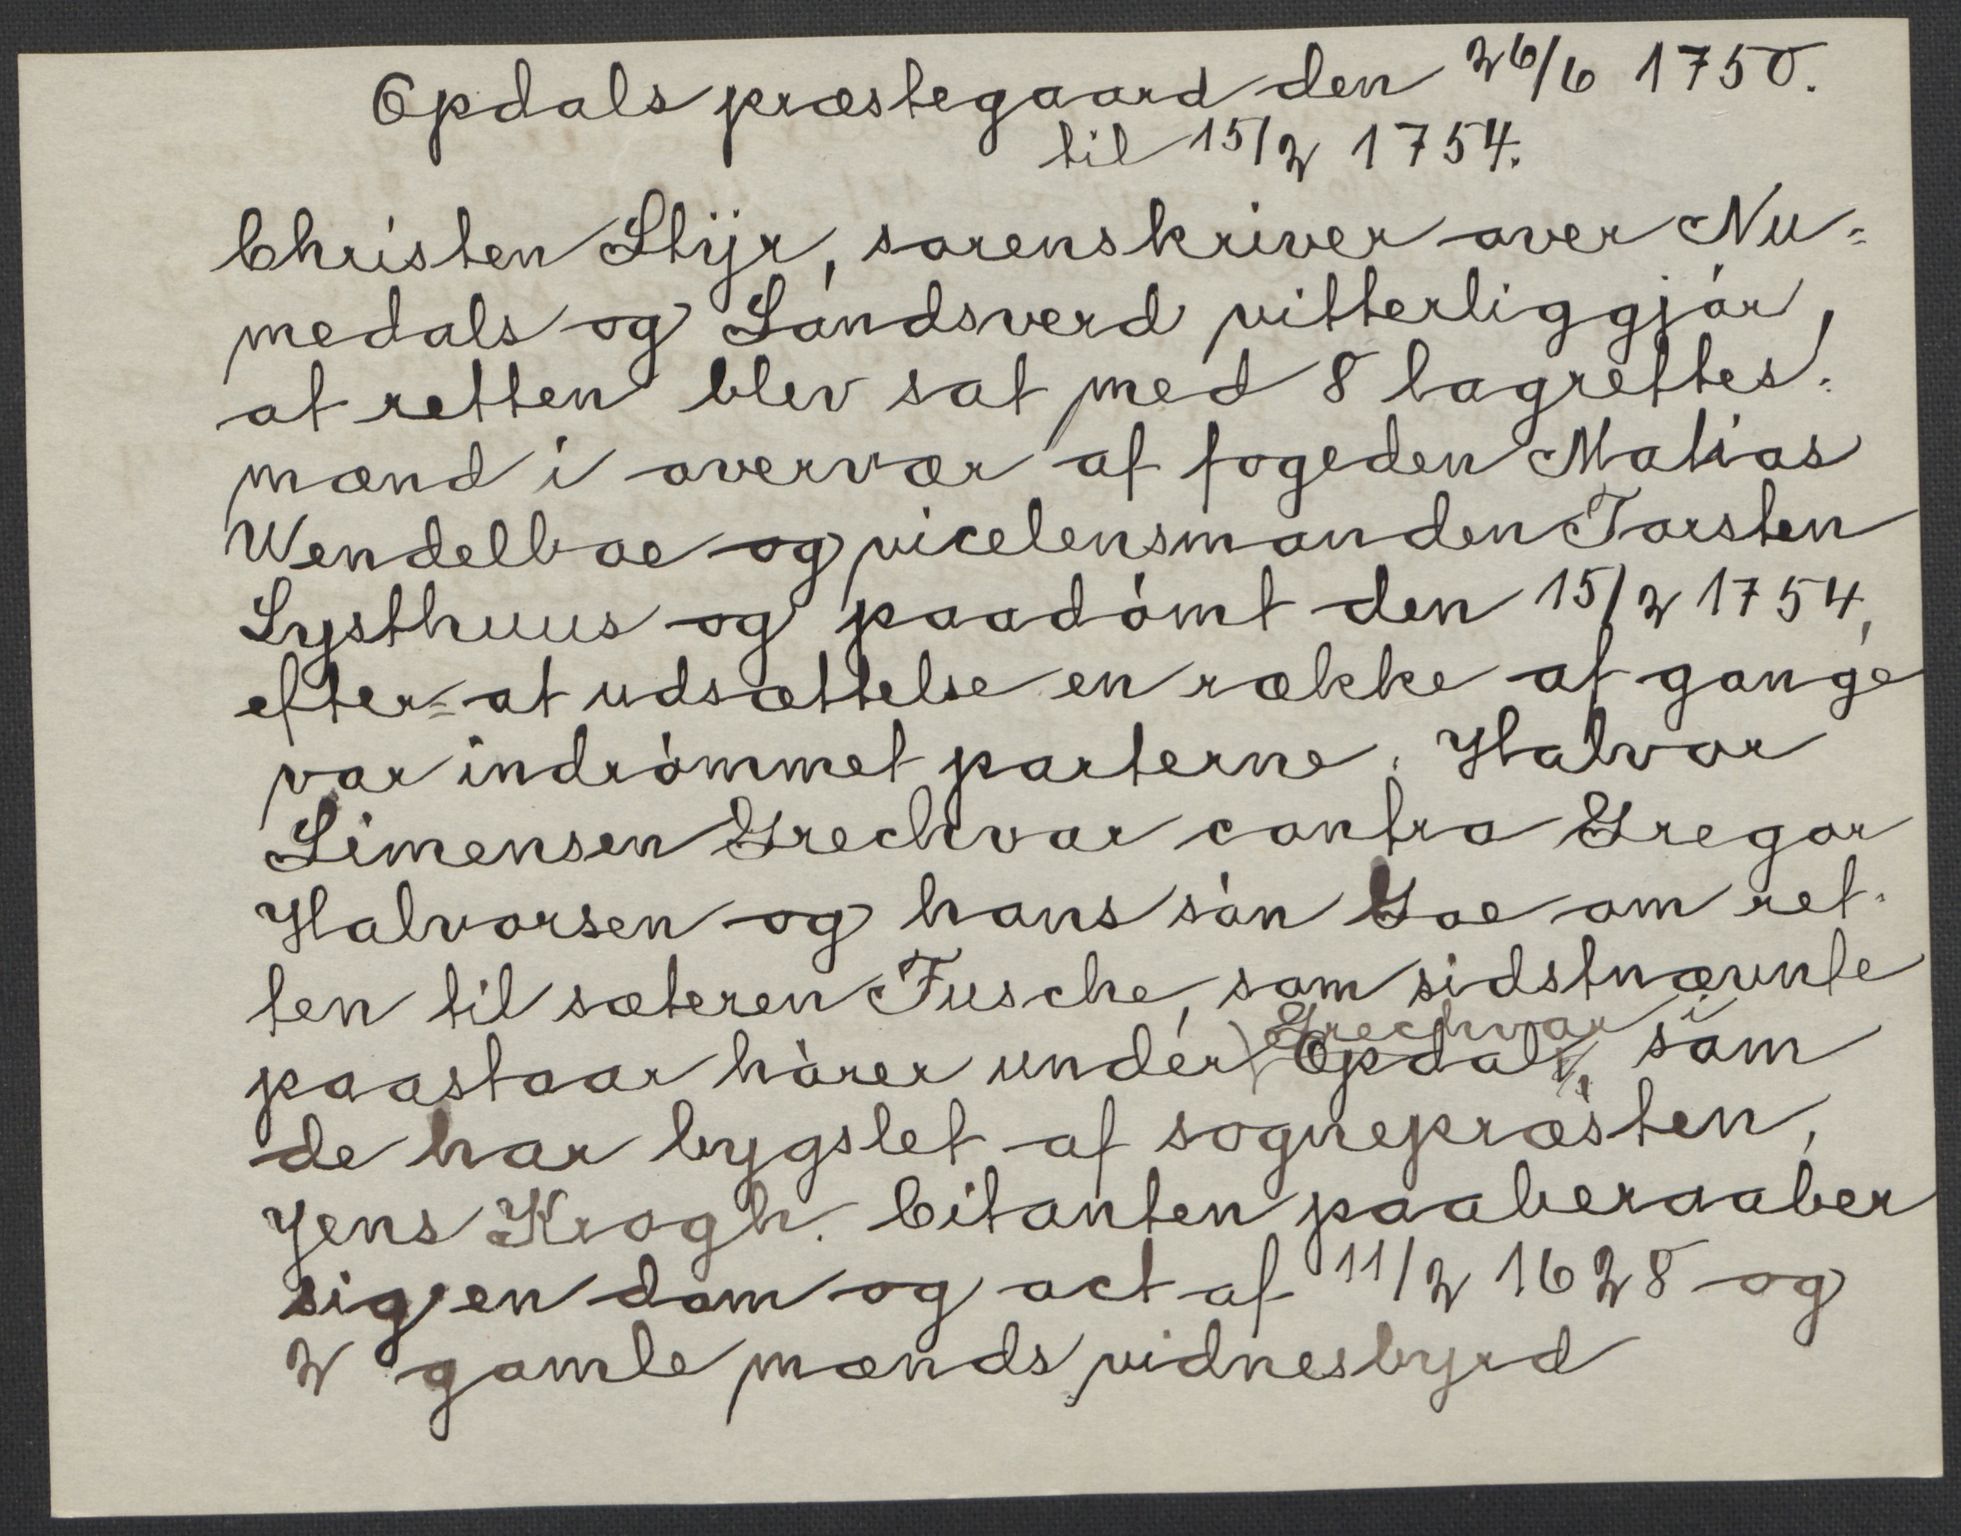 Opdals præstegaard den 26/6 1750.
til 15/2 1754.
Christen Stijr, sorenskriver over Nu=
medals og Sandsverd vitterliggjør,
at retten blev sat med 8 lagrettes=
mænd i overvær af fogeden Matias
Wendelboe og vicelensmanden Torsten
Lysthuus og paadømt den 15/2 1754,
efter=at udsættelse en række af gange
var indrømmet parterne. Halvor
Simensen Grechvar contra Gregar
Halvorsen og hans søn Goe om ret=
ten til sæteren Fusche, som sidstnævnte
Grechvar i
paastaar hører under Opdal, som
de har bygslet af sognepræsten,
Jens Krogh. Citanten paaberaaber
sig en dom og act af 11/2 1628 og
2 gamle mænds vidnesbyrd